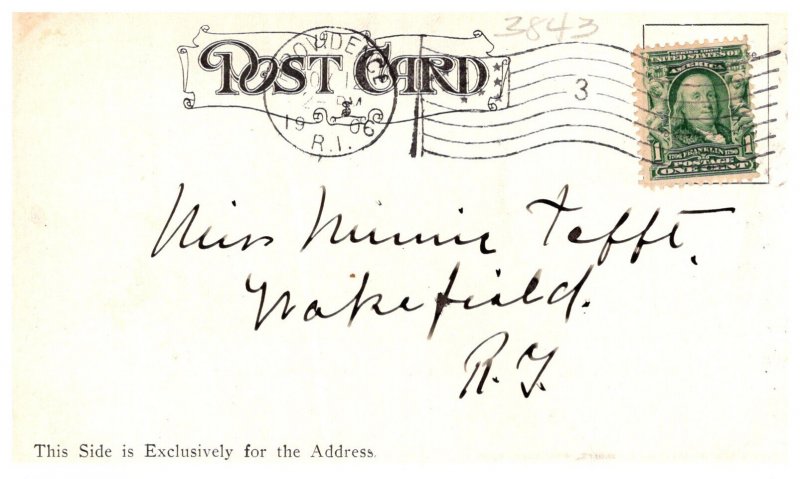 3843
POST CARD
PROVIDENCE
1906
R.I.
3
SERIES 1902
UNITED STATES OF
AMERICA
1 1
1706 FRANKLIN 1790
POSTAGE
ONE CENT
Miss Minnie Tefft,
Wakefield.
R.I.
This Side is Exclusively for the Address.